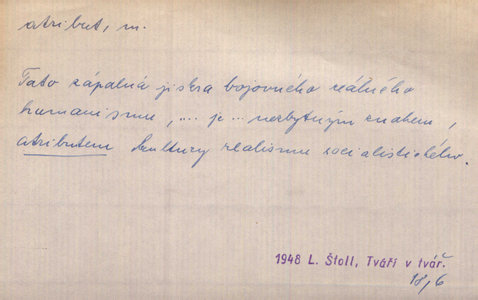 atribut, m.
Tato zápalná jiskra bojovného reálného
humanismu, ... je ... nezbytným znakem,
atributem kultury realismu socialistického.
1948 L. Štoll, Tváří v tvář.
18,6